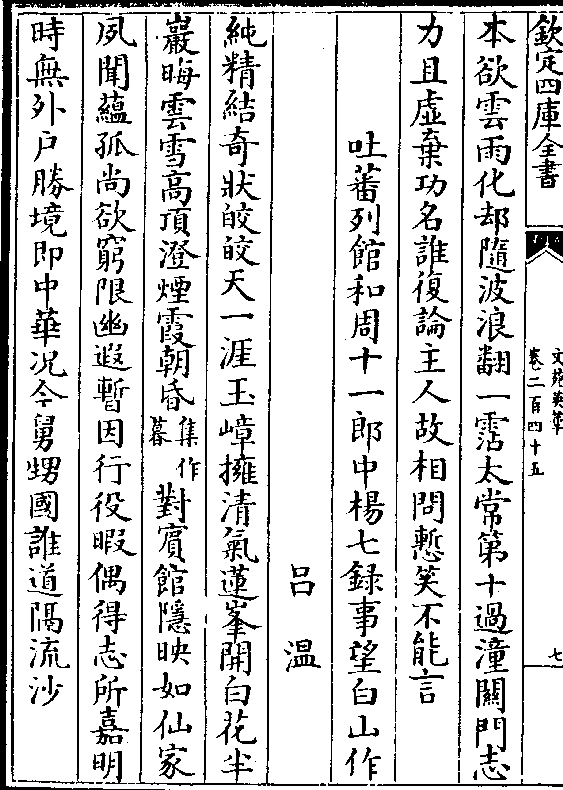 欽定四庫全書
文苑英華
卷二百四十五
七
本欲雲雨化却隨波浪翻一霑太常第十過潼關門志
力且虛棄功名誰復論主人故相問慙笑不能言
吐蕃列館和周十一郎中楊七録事望白山作
吕温
純精結奇狀皎皎天一涯玉嶂擁清氣蓮峯開白花半
巖晦雲雪高頂澄煙霞朝昏集作暮對賓館隱映如仙家
夙聞藴孤尚欲窮限幽遐暫因行役暇偶得志所嘉明
時無外户勝境即中華况今舅甥國誰道隔流沙